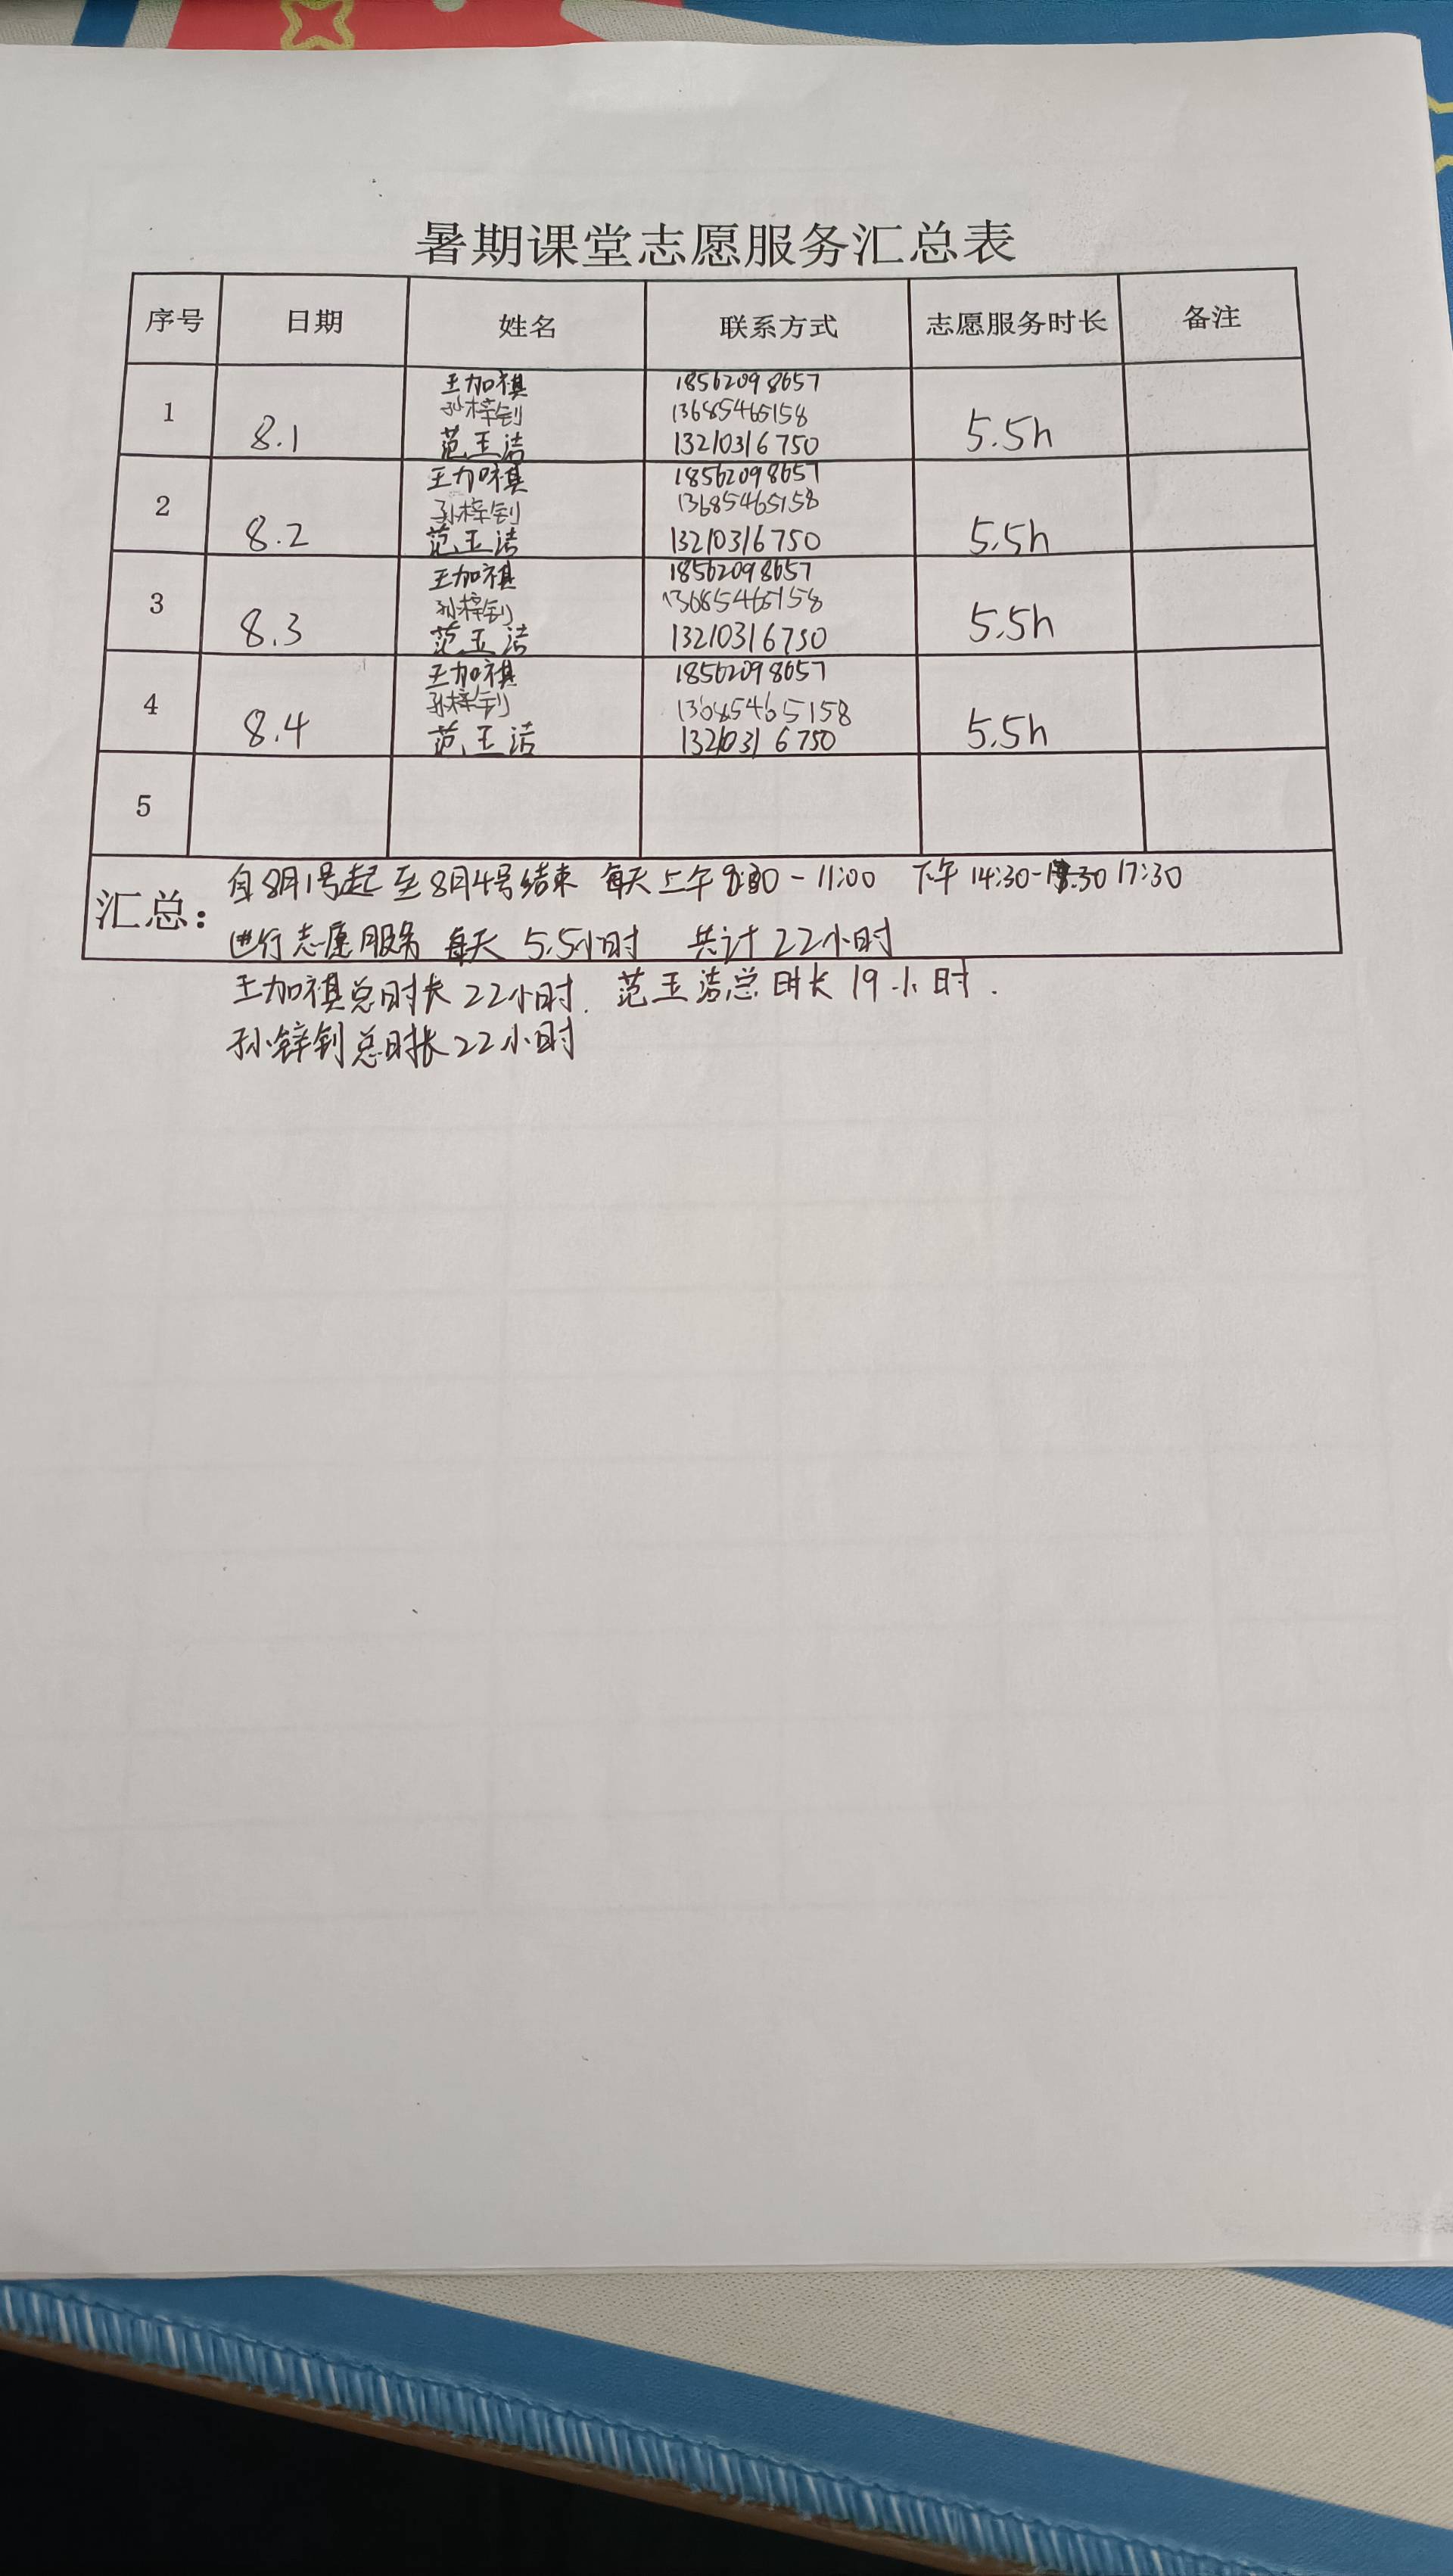 暑期课堂志愿服务汇总表
序号 日期 姓名 联系方式 志愿服务时长 备注
1 8.1 王加祺 18562098657 5.5h
孙梓钊 13685465158
范玉洁 13210316750
2 8.2 王加祺 18562098657 5.5h
孙梓钊 13685465158
范玉洁 13210316750
3 8.3 王加祺 18562098657 5.5h
孙梓钊 13685465158
范玉洁 13210316750
4 8.4 王加祺 18562098657 5.5h
孙梓钊 13685465158
范玉洁 13210316750
5
汇总：自8月1号起至8月4号结束 每天上午8:30-11:00 下午14:30-17:30
进行志愿服务 每天 5.5小时 共计22小时
王加祺总时长22小时. 范玉洁总时长19小时.
孙锌钊总时长22小时